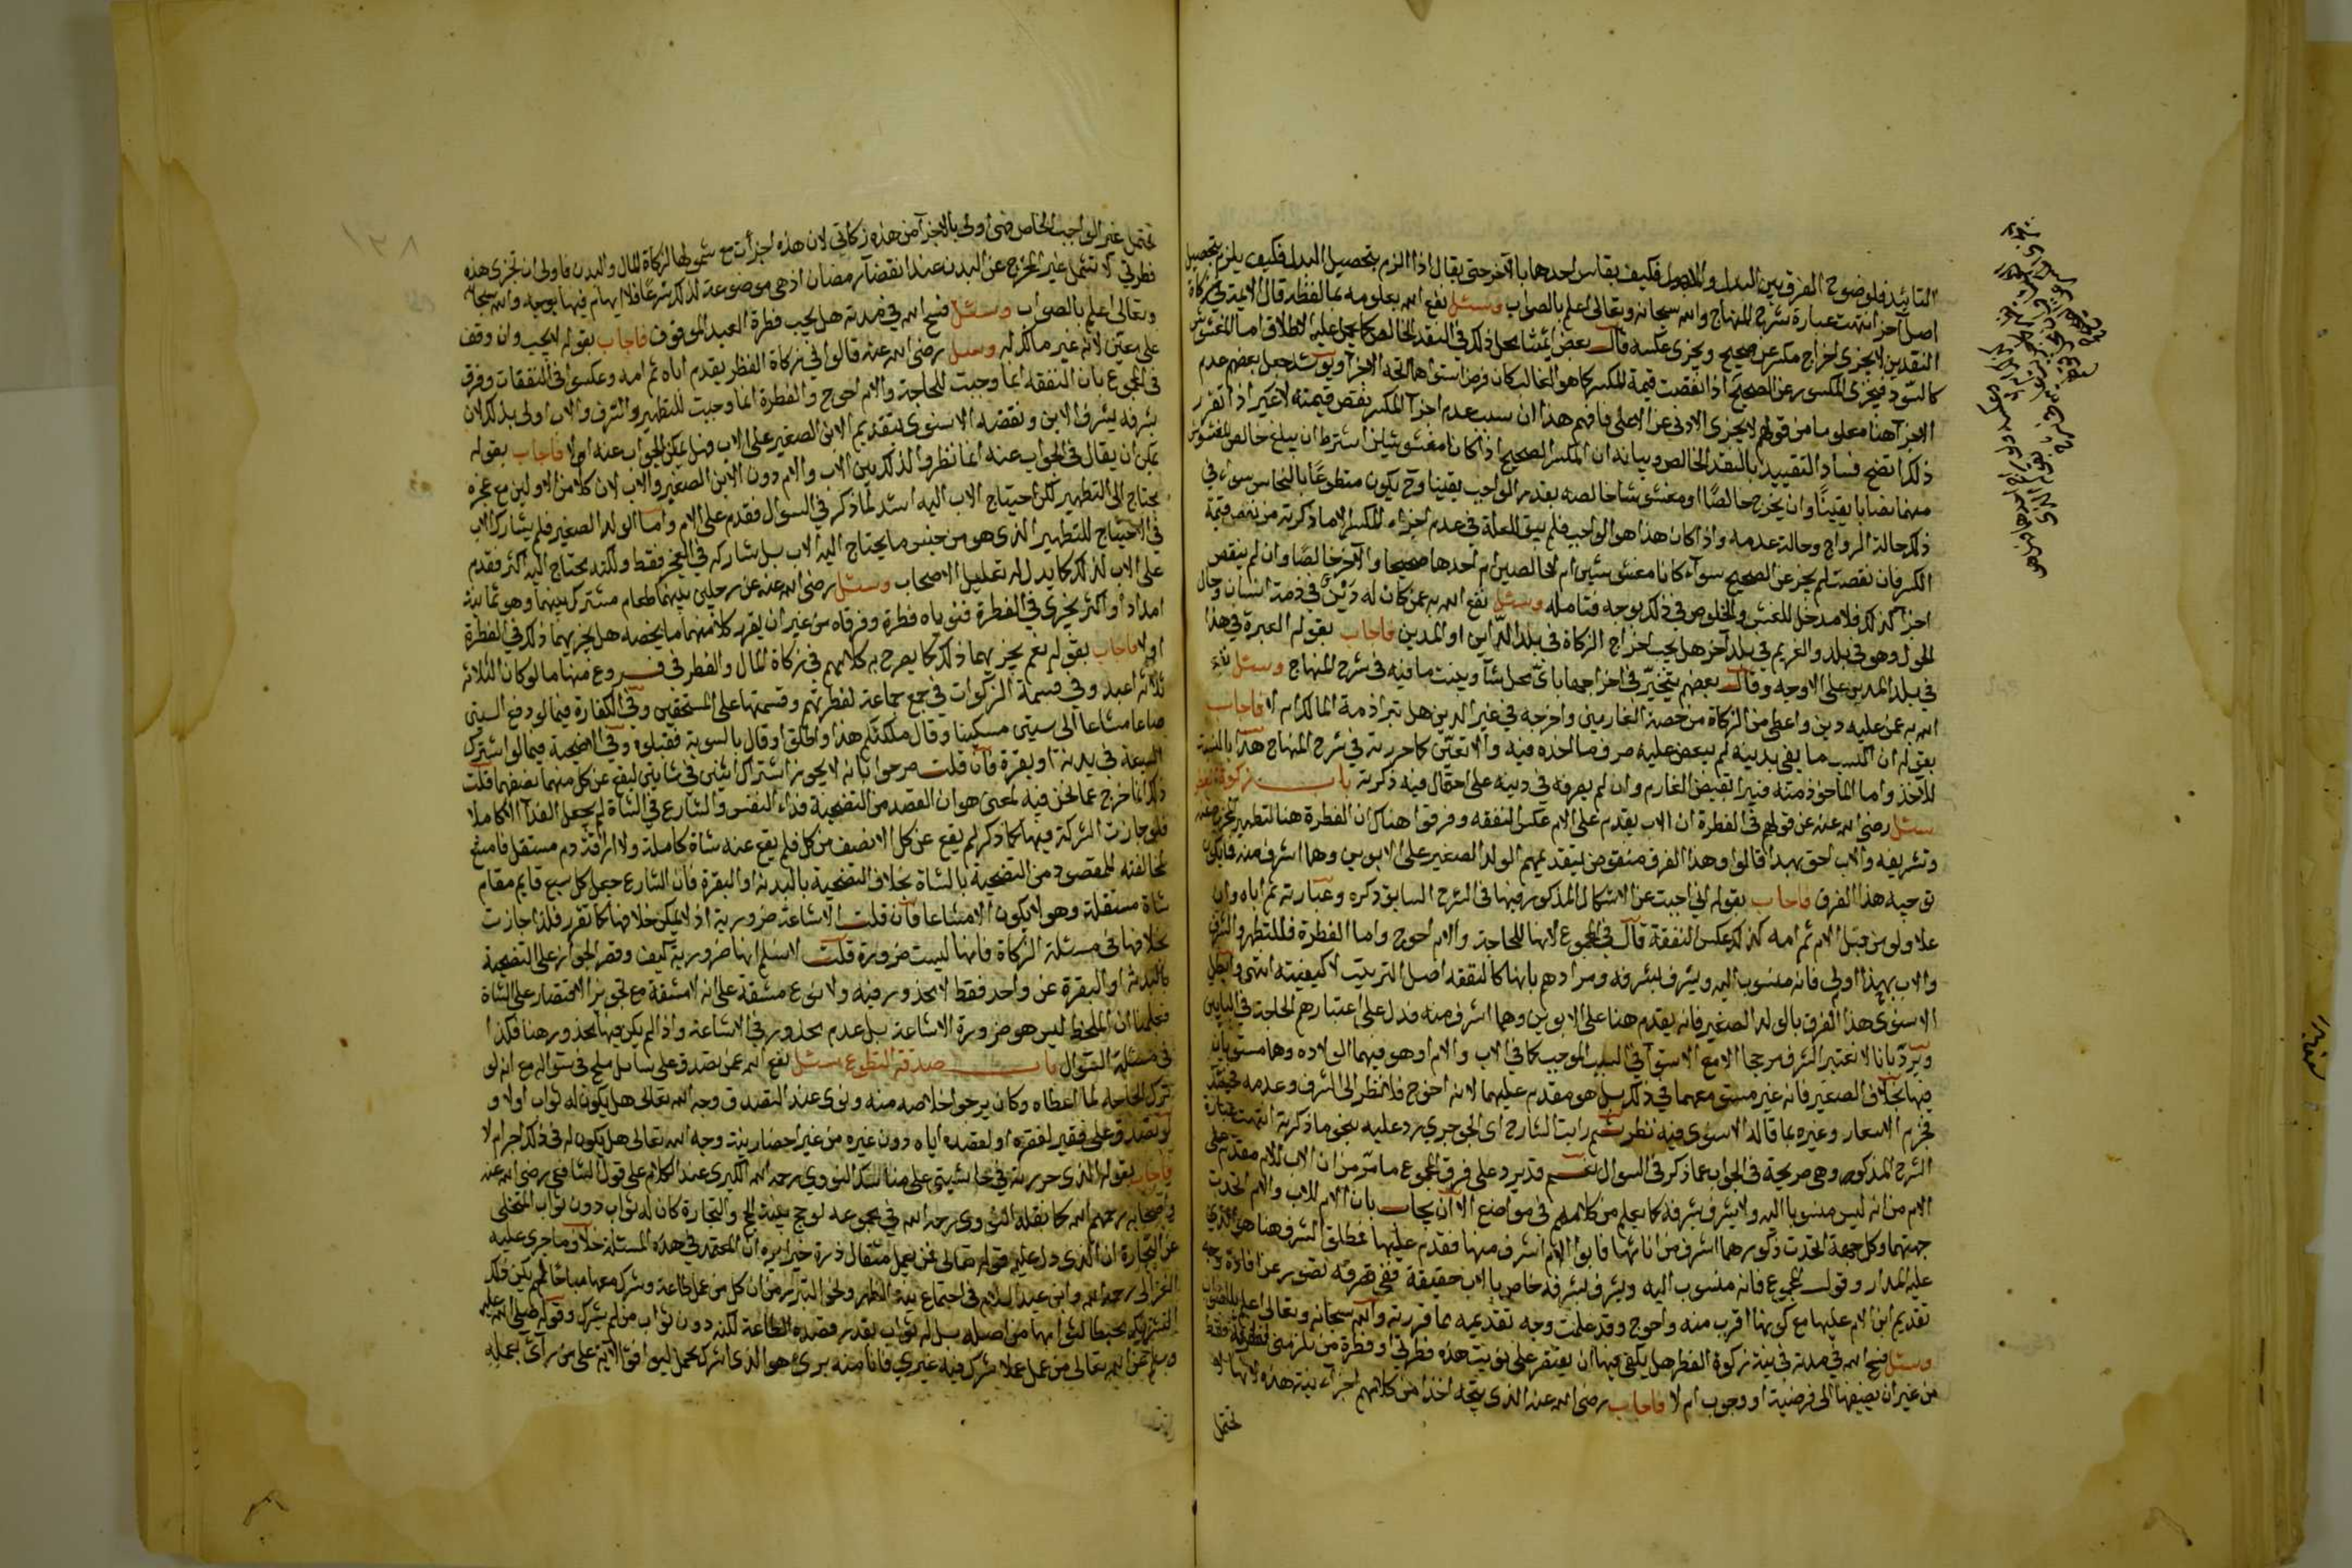 التأبيد فلوضوح الفرق بين البدل والاصول فكيف يقاس احدهما بالآخر حتى يقال اذا الزم بتحصيل البدل فكيف يلزم بتحصيل
اصل آخر انتهت عبارة شرح المنهاج والله سبحانه وتعالى اعلم بالصواب وسئل نفع الله بعلومه بما لفظه قال الائمة في زكاة
النقدين لا يجزى اخراج مكسر عن صحيح ويجزى عكسه قال بعض ائمتنا محل ذلك في النقد الخالص كما يحمل عليه الاطلاق اما المغشوش
فيجزى المكسور عن الصحيح اذا نقصت قيمة المكسر كما هو الغالب كان فرض استواهما اتجه الاجزآ ويؤيده جعل بعضهم عدم
الاجزآ هنا معلوما من قولهم لا يجزى الادنى عن الاعلى فافهم هذا ان سبب عدم اجزآ المكسر نقص قيمته لا غير اذا تقرر
ذلك اتضح فساد التقييد بالنقد الخالص وبيانه ان المكسر والصحيح اذا كانا مغشوشين اشترط ان يبلغ خالص المغشوش
منهما نصابا يقينًا وان يخرج خالصًا او مغشوشا خالصه بقدر الواجب يقينا وح يكون متطوعًا بالنحاس سواء في
ذلك حالة الرواج وحالة عدمه واذا كان هذا هو الواجب فلم يبق للعلة في عدم اجزاء المكسر الا ما ذكرته من نقص قيمة
الكسر فان نقصت لم يجز عن الصحيح سوآء كانا مغشوشين ام خالصين ام احدهما صحيحا والآخر خالصًا وان لم ينقص
اجزا كذلك فلا مدخل للغش والخلوص في ذلك بوجه فتامله وسئل نفع الله به عمن كان له دَيْنٌ في ذمة انسان وحال
الحول وهو في بلد والغريم في بلد آخر هل يجب اخراج الزكاة في بلد الدّاين او المدين فاجاب بقوله العبرة في هذا
في بلد المدين على الاوجه وقال بعضهم يتخيّر في اخراجها باىّ محل شآ وبينت ما فيه في شرح المنهاج وسئل نفع
الله به عمن عليه دين واعطى من الزكاة من حصة الغارمين واخرجه في غير الدين هل تبرا ذمة المالك ام لا فاجاب
بقوله ان اكتسب ما يفي بدينه لم يبعض عليه صرف ما اخذه فيه والا تعيّن كما حررته في شرح المنهاج هذا بالنسبة
للآخذ واما المآخوذ منه فيبرا بقبض الغارم وان لم يصرفه في دينه على احتمال فيه ذكرته باب زكوة الفطر
سئل رضى الله عنه عن قولهم في الفطرة ان الاب يقدم على الام عكس النفقه وفرقوا هناك ان الفطرة هنا لتطهير المخرج عنه
وتشريفه والاب احق بهذا قالوا وهذا الفرق منقوض بتقديمهم الولد الصغير على الابوين وهما اشرف منه فايكون
توجيه هذا الفرق فاجاب بقوله اني اجبت عن الاشكال المذكور فيها في الشرح السابق ذكره وعبارته ثم اباه وان
علا ولو من قبل الام ثم امه كذلك عكس النفقة قال في المجموع لانها للحاجة والام احوج واما الفطرة فللتطهر والشرف
والاب بهذا اولى فانه منسوب اليه ويشرف بشرفه ومرادهم بانها كالنفقه اصل الترتيب لا كيفيته انتهى وابطل
الاسنوى هذا الفرق بالولد الصغير فانه يقدم هنا على الابوين وهما اشرف منه فدل على اعتبارهم الحاجة في البابين
ويردّ بانا لا نعتبر الشرف مرجحا الا مع الاستوآ في السبب الموجب كما في الاب والام اذ هو فيهما الولاده وهما مستويان
فيها بخلاف الصغير فانه غير مستو معهما في ذلك بل هو مقدم عليهما لانه احوج فلا نظر الى الشرف وعدمه
فجزم الاسعاد وغيره بما قاله الاسنوى فيه نظر ثم رايت الشارح اى الجوجري رد عليه بنحو ما ذكرته انتهت عبارة
الشرح المذكور وهى صريحة في الجواب عما ذكر في السوال نعم قد يرد على فرق المجموع ما مرّ من ان الاب للام مقدم على
الام من انه ليس منسوبا اليه ولا يشرف بشرفه كما يعلم من كلامهم في مواضع الا ان يجاب بان الام للاب والام اتحدت
جهتهما وكل جهة اتحدت ذكورهما اشرف من اناثها فابوا الام اشرف منها فقدم عليها فمطلق الشرف هنا هو الذي
عليه المدار وقول المجموع فانه منسوب اليه ويشرف بشرفه خاص بالابن حقيقة ففي تصرفه تصور عن افادة وجه
تقديم ابن الام عليها مع كونها اقرب منه واحوج وقد علمت وجه تقديمه مما قررته والله سبحانه وتعالى اعلم بالصواب
وسئل فسح الله في مدته في نية زكوة الفطر هل يكفي فيها ان يقتصر على نويت هذه فطرتي او فطرة من تلزمنى فطرته
من غير ان يضيفها الى فرضية او وجوب ام لا فاجاب رضى الله عنه الذى يتجه اخذا من كلامهم اجزآء نية هذه لانها لا
تحتمل
١٢٨
تحتمل غير الواجب الخاص فهى أولى بالاجزآ من هذه زكاتي لان هذه اجزأت مع شمولها لزكاة المال والبدن فاولى ان تجزى هذه
فطرتي لا تشمل غير المخرج عن البدن عند انقضآء رمضان اذ هى موضوعة لذلك شرعًا فلا ايهام فيها بوجه والله سبحانه
وتعالى اعلم بالصواب وسئل فسح الله في مدته هل يجب فطرة العبد الموقوف فاجاب بقوله لا يجب وان وقف
على معين لانه غير مالك له وسئل رضى الله عنه قالوا في زكاة الفطر يقدم اباه ثم امه وعكسوا في النفقات وفرق
في المجموع بان النفقه انما وجبت للحاجة والام احوج والفطرة انما وجبت للتطهير والشرف والاب اولى بذلك لان
شرفه يشرف الابن ونقضه الاسنوى بتقديم الابن الصغير على الاب فهل يمكن الجواب عنه اولا فاجاب بقوله
يمكن ان يقال في الجواب عنه انما نظروا لذلك بين الاب والام دون الابن الصغير والاب لان كلا من الاولين مع عجزه
يحتاج الى التطهير لكن احتياج الاب اليه اشد لما ذكر في السوال فقدم على الام واما الولد الصغير فلم يشارك الاب
في الاحتياج للتطهير الذى هو من جنس ما يحتاج اليه الاب بل شاركه في العجز فقط ولكنه محتاج اليه اكثر فقدم
على الاب لذلك كما يدل له تعليل الاصحاب وسئل رضى الله عنه عن رجلين بينهما طعام مشترك بينهما وهو ثمانية
امداد او اكثر يجزى في الفطرة فنوياه فطرة وفرقاه من غير ان يفرد كلا منهما ما يخصه هل يجزيهما ذلك في الفطرة
اولا فاجاب بقوله نعم يجزيهما ذلك كما يصرح به كلامهم في زكاة المال والفطر في فروع منها ما لو كان لثلاثة
ثلاثة اعبد وفي قسمة الزكوات في جمع جماعة لفطرتهم وقسمتها على المستحقين وفي الكفارة فيما لو دفع الستين
صاعا مشاعا الى ستين مسكينا وقال ملكتكم هذا واطلق او قال بالسوية فقبلوه وفي الاضحية فيما لو اشترك
السبعة في بدنة او بقرة فان قلت صرحوا بانه لا يجوز اشتراك اثنين في شاتين ليقع عن كل منهما نصفهما قلت
ذلك انما خرج عما نحن فيه لمعنى هو ان القصد من التضحية فداء النفس والشارع في الشاة لم يجعل الفدآ الا كاملا
فلو جازت الشركة فيها كما ذكر لم يقع عن كل الا نصف من كل فلم يقع عنه شاة كاملة ولا اراقة دم مستقل فامتنع
لمخالفته للمقصود من التضحية بالشاة بخلاف التضحية بالبدنة او البقرة فان الشارع جعل كل سبع قايم مقام
شاة مستقلة وهو لا يكون الا مشاعا فان قلت الاشاعة ضرورية اذ لا يمكن خلافها كما تقرر فلذا جازت
بخلافها في مسئلة الزكاة فانها ليست ضرورة قلت لا نسلم انها ضرورية كيف وقصر الجواز على التضحية
بالبدنة او البقرة عن واحد فقط لا محذور فيه ولا نوع مشقة على انه لا مشقة مع تجويز الاقتصار على الشاة
فعلمنا ان الملحظ ليس هو ضرورة الاشاعة بل عدم محذور في الاشاعة واذا لم يكن فيها محذور هنا فكذا
في مسئلة السوال باب صدقة التطوع سئل نفع الله به عمن تصدق على سآئل ملح في سواله مع انه لو
ترك الحاحه لما اعطاه وكان يرجوا خلاصه منه ونوى عند التصدق وجه الله تعالى هل يكون له ثواب اولا و
لو تصدق على فقير لفقره او لقصده اياه دون غيره من غير احضار نية وجه الله تعالى هل يكون له في ذلك اجر ام لا
فاجاب بقوله الذى حررته في حاشيتي على مناسك النووي رحمه الله الكبرى عند الكلام على قول الشافعي رضى الله عنه
واصحابه رحمهم الله كما نقله النووى رحمه الله في مجموعه لو حج بنية الحج والتجارة كان له ثواب دون ثواب المتخلى
عن التجارة ان الذى دل عليه قوله تعالى فمن يعمل مثقال ذرة خيرا يره ان المعتمد في هذه المسئلة خلاف ما جرى عليه
الغزالى رحمه الله وابن عبد السلام في اجتماع نية التطهر ونحو التبرد من ان كل من عمل طاعة وشرك معها مباحا لم يكن ذلك
التشريك محبطا لثوابها من اصله بل له ثواب بقدر قصده الطاعة لكنه دون ثواب من لم يشرك وقوله صلى الله عليه
وسلم عن الله تعالى من عمل عملا اشرك فيه غيري فانا منه برئ هو الذى اشرك محمل ليوافق الآية على من رآئى بعمله